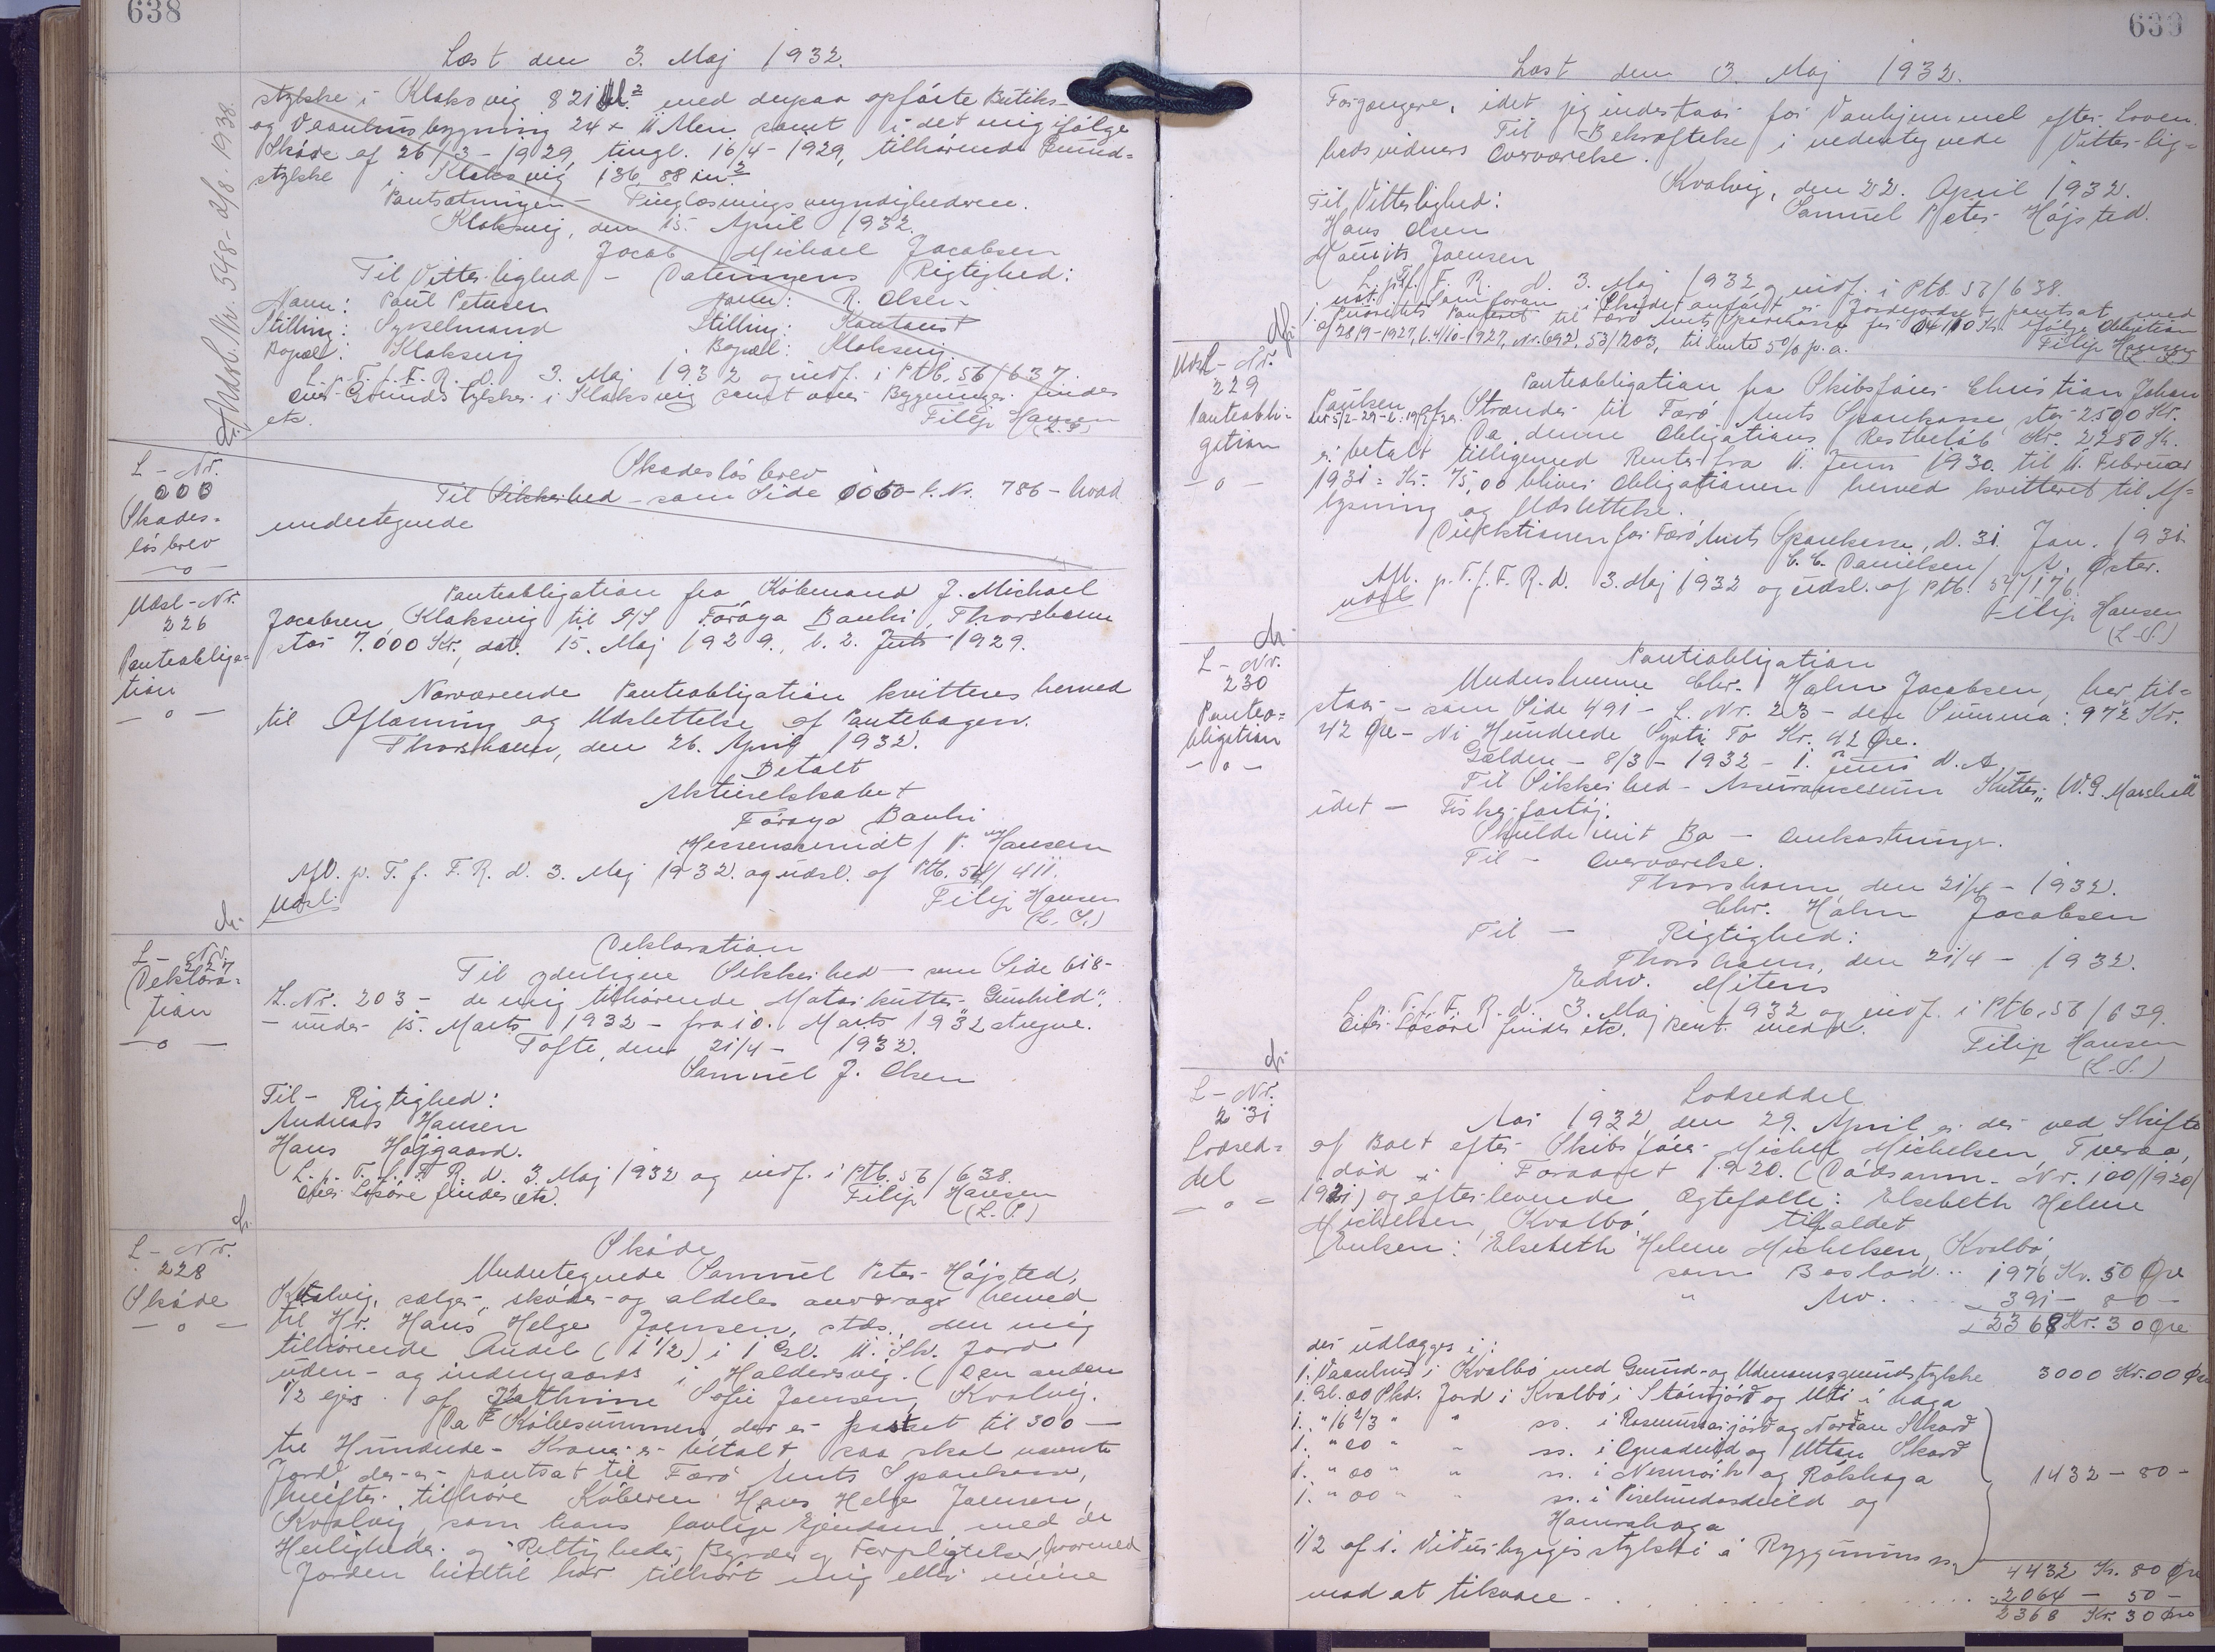 638
Læst den 3. Maj 1932.
stykke i Klaksvig 821 Al.² med derpaa opførte Butiks-
og Vaanhusbygning 24 x 11 Alen samt i det mig ifølge
Skøde af 26/3 - 1929, tingl. 16/4 - 1929, tilhørende Grund=
stykke i Klaksvig 136,88 m²
Pantsætningen - Tinglæsningsmyndighederne.
Klaksvig, den 15. April 1932.
Jacob Michael Jacobsen
Til Vitterlighed - Dateringens Rigtighed:
Navn: Poul Petersen Navn: R. Olsen
Stilling: Sysselmand Stilling: Kontorist
Bopæl: Klaksvig Bopæl: Klaksvig
L. p. T. f. F. R. d. 3. Maj 1932 og indf. i Ptb. 56/637.
Over Grundstykker i Klaksvig samt over Bygninger findes
etc. Filip Hansen
(L.S.)
Andsb. Nr. 548 - 2/8 - 1938.
L - Nr.
000
Skades=
løsbrev
— o —
Skadesløsbrev
Til Sikkerhed - som Side - L. Nr. 786 - hvad
undertegnede
Udsl - Nr.
226
Panteobliga=
tion
— o —
Panteobligation fra Købmand J. Michael
Jacobsen, Klaksvig til A/S Føroya Banki, Thorshavn
stor 7.000 Kr., dat. 15. Maj 1929., l. 2. Juli 1929.
Nærværende Panteobligation kvitteres herved
til Aflæsning og Udslettelse af Pantebogen.
Thorshavn, den 26. April 1932.
Betalt
Aktieselskabet
Føroya Banki
/ P. Hansen
Afl. p. T. f. F. R. d. 3. Maj 1932 og udsl. af Ptb. 54/411.
Udsl. Filip Hansen
(L. S.)
L - Nr.
227
Deklara=
tion
— o —
Deklaration
Til yderligere Sikkerhed - som Side 618 -
L. Nr. 203 - de mig tilhørende Motorkutter "Gunhild".
- under 15. Marts 1932 - fra 10. Marts 1932 at regne.
Tofte, den 21/4 - 1932.
Samuel J. Olsen
Til - Rigtighed:
Andreas Hansen
Hans Højgaard.
L. p. T. f. F. R. d. 3. Maj 1932 og indf. i Ptb. 56/638.
Over Løsøre findes etc. Filip Hansen
(L. S.)
L - Nr.
228
Skøde
— o —
Skøde
Undertegnede Samuel Peter Højsted,
Kvalvig, sælger, skøder og aldeles overdrager herved
til Hr. Hans Helge Joensen, stds., den mig
tilhørende Andel (1 1/2) i 1 Gl. 11. Sk. Jord
uden- og indengaards i Haldersvig. (Den anden
1/2 ejes af Kathrine Sofie Joensen, Kvalvig.
Da Købesummen, der er fastsat til 300 -
tre Hundrede - Kroner er betalt, saa skal nævnte
Jord, der er pantsat til Færø Amts Sparekasse,
herefter tilhøre Køberen Hans Helge Joensen,
Kvalvig, som hans lovlige Ejendom med de
Herligheder og Rettigheder, Byrder og Forpligtelser, hvormed
Jorden hidtil har tilhørt mig eller mine
639
Læst den 3. Maj 1932.
Forgængere, idet jeg indestaar for Vanhjemmel efter Loven.
Til Bekræftelse i undertegnede Vitterlig=
hedsvidners Overværelse.
Kvalvig, den 22. April 1932.
Til Vitterlighed: Samuel Peter Højsted.
Hans Olsen
Mouritz Joensen
L. p. T. f. F. R. d. 3. Maj 1932 og indf. i Ptb. 56/638.
Som foran i Skødet anført er Jordejorden pantsat med
1. Prioritets Panteret til Færø Amts Sparekasse for Kr. ifølge Obligation
af 28/9-1927, l. 4/10-1927, Nr. 692, 53/203, til Rente 5% p.a. Filip Hansen
(L. S.)
Udsl - Nr.
229
Panteobli=
gation
— o —
Panteobligation fra Skibsfører Christian Johan
Poulsen af Strænder til Færø Amts Sparekasse, stor 2500 Kr.
Da denne Obligations Restbeløb Kr. 2250 Kr.
er betalt tilligemed Renter fra 11. Juni 1930 til 11. Februar
1931 = Kr. 75,00 bliver Obligationen herved kvitteret til Af=
lysning og Udslettelse.
Direktionen for Færø Amts Sparekasse, d. 31. Jan. 1931.
C. C. Danielsen / N. Øster.
Afl. p. T. f. F. R. d. 3. Maj 1932 og udsl. af Ptb. 54/176.
Udsl. Filip Hansen
(L. S.)
L - Nr.
230
Panteo=
bligation
— o —
Panteobligation
Underskrevne Chr. Holm Jacobsen, her til=
staar - som Side 491 - L. Nr. 23 - den Summa: 972 Kr.
42 Øre - Ni Hundrede Syvti To Kr. 42 Øre.
Gælden - 8/3 - 1932 - 1. Juni d. A.
Til Sikkerhed - Assurancesum Kutter "W. S. Marshall"
idet - Fiskefartøj.
Skulde mit Bo - Omkostninger.
Til - Overværelse.
Thorshavn, den 21/4 - 1932.
Chr. Holm Jacobsen
Til - Rigtighed:
Thorshavn, den 21/4 - 1932.
Edw. Mitens
L. p. T. f. F. R. d. 3. Maj 1932 og indf. i Ptb. 56/639.
Over Løsøre findes etc.
Filip Hansen
(L. S.)
L - Nr.
231
Lodsed=
del
— o —
Lodseddel
Aar 1932, den 29. April er der ved Skifte
af Boet efter Skibsfører Michel Michelsen, Tveraa,
død i Foraaret 1920. (Dødsanm. Nr. 100/1920/
1921) og efterlevende Ægtefælle: Elsebeth Helene
Michelsen, Kvalbø, tilfaldet
Enken: Elsebeth Helene Michelsen, Kvalbø,
som Boslod .. 1976 Kr. 50 Øre
" Arv. . . . . 391 - 80 -
2368 Kr. 30 Øre
der udlægges i:
1. Vaanhus i Kvalbø med Grund- og Udenomsgrundstykke 3000 Kr. 00 Øre
1. Gl. 00 Skd. Jord i Kvalbø i Stórutjørð og Uti í haga
1. " 16 2/3 " " ss. i og Norðan Skarð
1. " 20 " " ss. i og Uttan Skarð
1. " 00 " " ss. i og Rókhaga 1432 - 80 -
1. " 00 " " ss. i og
Hamrahaga
1/2 af 1. stykki á Ryggunum ss.
4432 Kr. 80 Øre
mod at tilsvare . . . . . . . 2064 - 50 -
2368 Kr. 30 Øre